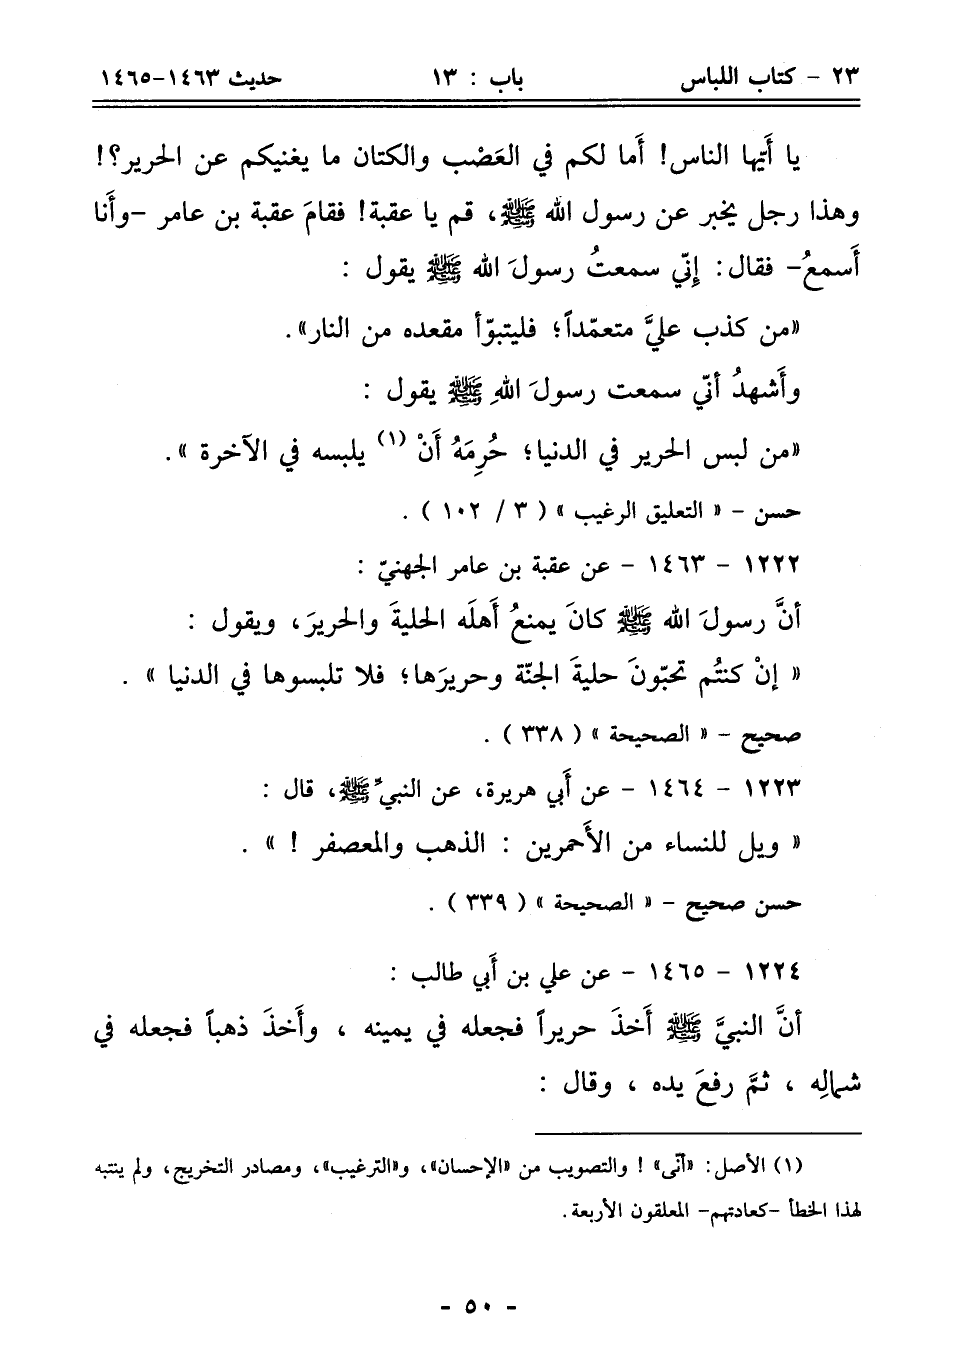 ٢٣ - كتاب اللباس باب : ١٣ حديث ١٤٦٣-١٤٦٥
يا أَيّها الناس! أَما لكم في العَصْب والكتان ما يغنيكم عن الحرير؟!
وهذا رجل يخبر عن رسول الله ﷺ، قم يا عقبة! فقامَ عقبة بن عامر -وأَنا
أَسمعُ- فقال: إِنّي سمعتُ رسولَ الله ﷺ يقول :
«من كذب عليَّ متعمّداً؛ فليتبوّأ مقعده من النار».
وأَشهدُ أنّي سمعت رسولَ اللهِ ﷺ يقول :
«من لبس الحرير في الدنيا؛ حُرِمَهُ أَنْ (١) يلبسه في الآخرة ».
حسن - « التعليق الرغيب » ( ٣ / ١٠٢ ) .
١٢٢٢ - ١٤٦٣ - عن عقبة بن عامر الجهنيّ :
أنَّ رسولَ الله ﷺ كانَ يمنعُ أَهلَه الحليةَ والحريرَ، ويقول :
« إنْ كنتُم تحبّونَ حليةَ الجنّة وحريرَها؛ فلا تلبسوها في الدنيا » .
صحيح - « الصحيحة » ( ٣٣٨ ) .
١٢٢٣ - ١٤٦٤ - عن أَبي هريرة، عن النبيِّ ﷺ، قال :
« ويل للنساء من الأَحمرين : الذهب والمعصفر ! » .
حسن صحيح - « الصحيحة » ( ٣٣٩ ) .
١٢٢٤ - ١٤٦٥ - عن علي بن أَبي طالب :
أنَّ النبيَّ ﷺ أَخذَ حريراً فجعله في يمينه ، وأَخذَ ذهباً فجعله في
شمالِه ، ثمَّ رفعَ يده ، وقال :
(١) الأصل: «أنّى» ! والتصويب من «الإحسان»، و«الترغيب»، ومصادر التخريج، ولم ينتبه
لهذا الخطأ -كعادتهم- المعلقون الأربعة.
- ٥٠ -